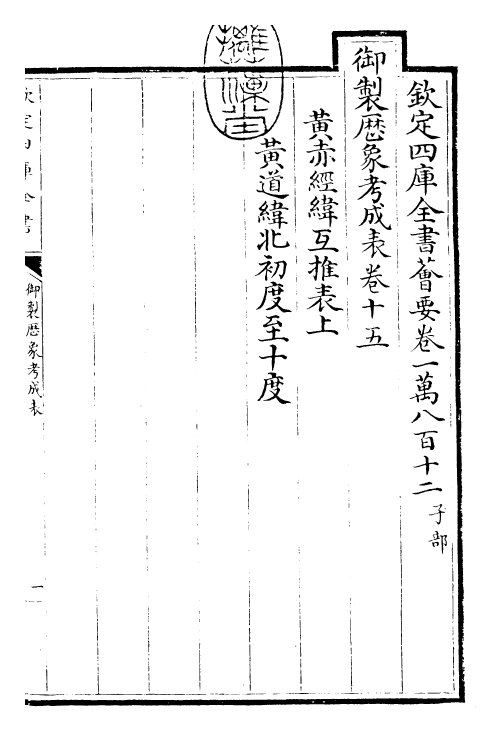 欽定四庫全書薈要卷一萬八百十二 子部
御製歴象考成表卷十五
黃赤經緯互推表上
黃道緯北初度至十度
欽定四庫全書
御製歴象考成表
一